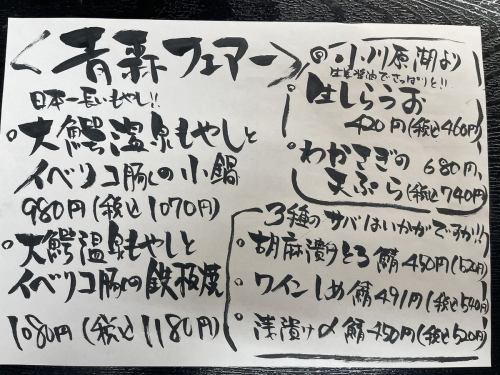 ＜青森フェアー＞
日本一長いもやし!!
○大鰐温泉もやしと
イベリコ豚の小鍋
980円(税込1070円)
○大鰐温泉もやしと
イベリコ豚の鉄板焼
1080円(税込1180円)
◎小川原湖より
生姜醤油でさっぱりと!!
生しらうお
420円(税込460円)
わかさぎの
天ぷら
680円、
(税込740円)
3種のサバはいかがですか!!
○胡麻漬けとろ鯖450円(520円)
○ワインしめ鯖491円(税込540円)
○浅漬け〆鯖450円(税込520円)